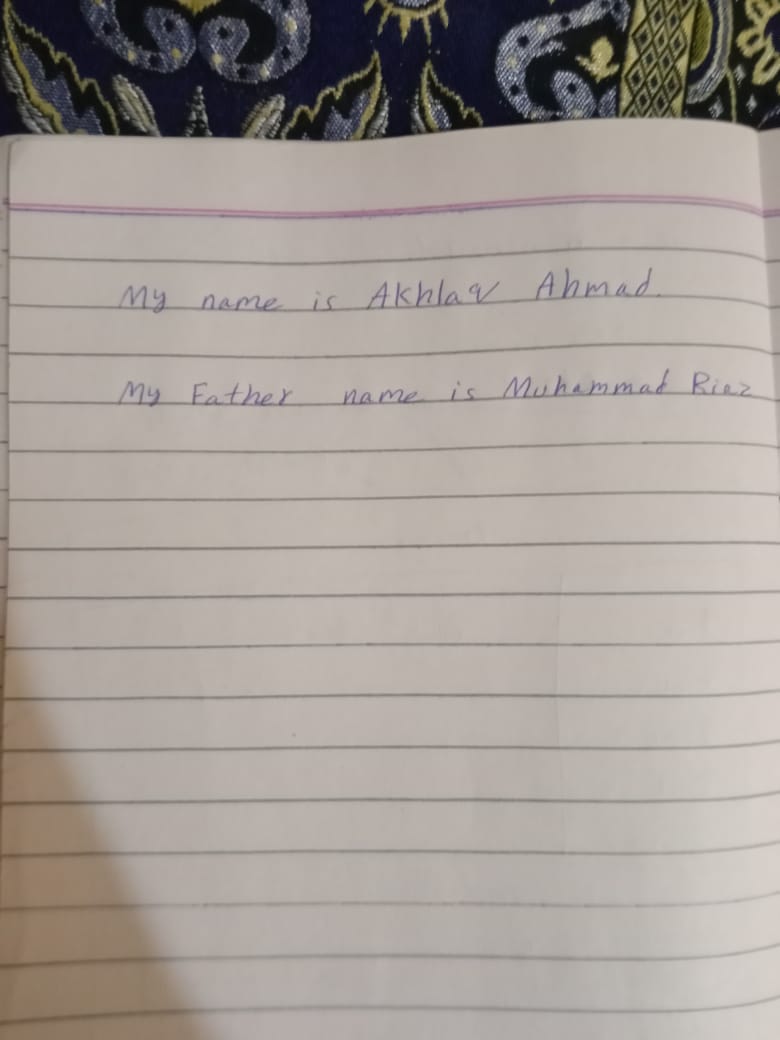 My name is Akhlaq Ahmad.
My Father name is Muhammad Riaz